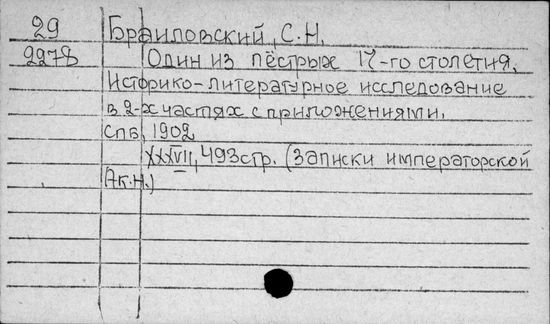 29 Браиловский, С.Н.
2278 Один из пёстрых 17-го столетия.
Историко-литературное исследование
в 2-х частях с приложениями.
Спб, 1902
XXXVII, 493 стр. (Записки императорской
Ак.Н.)